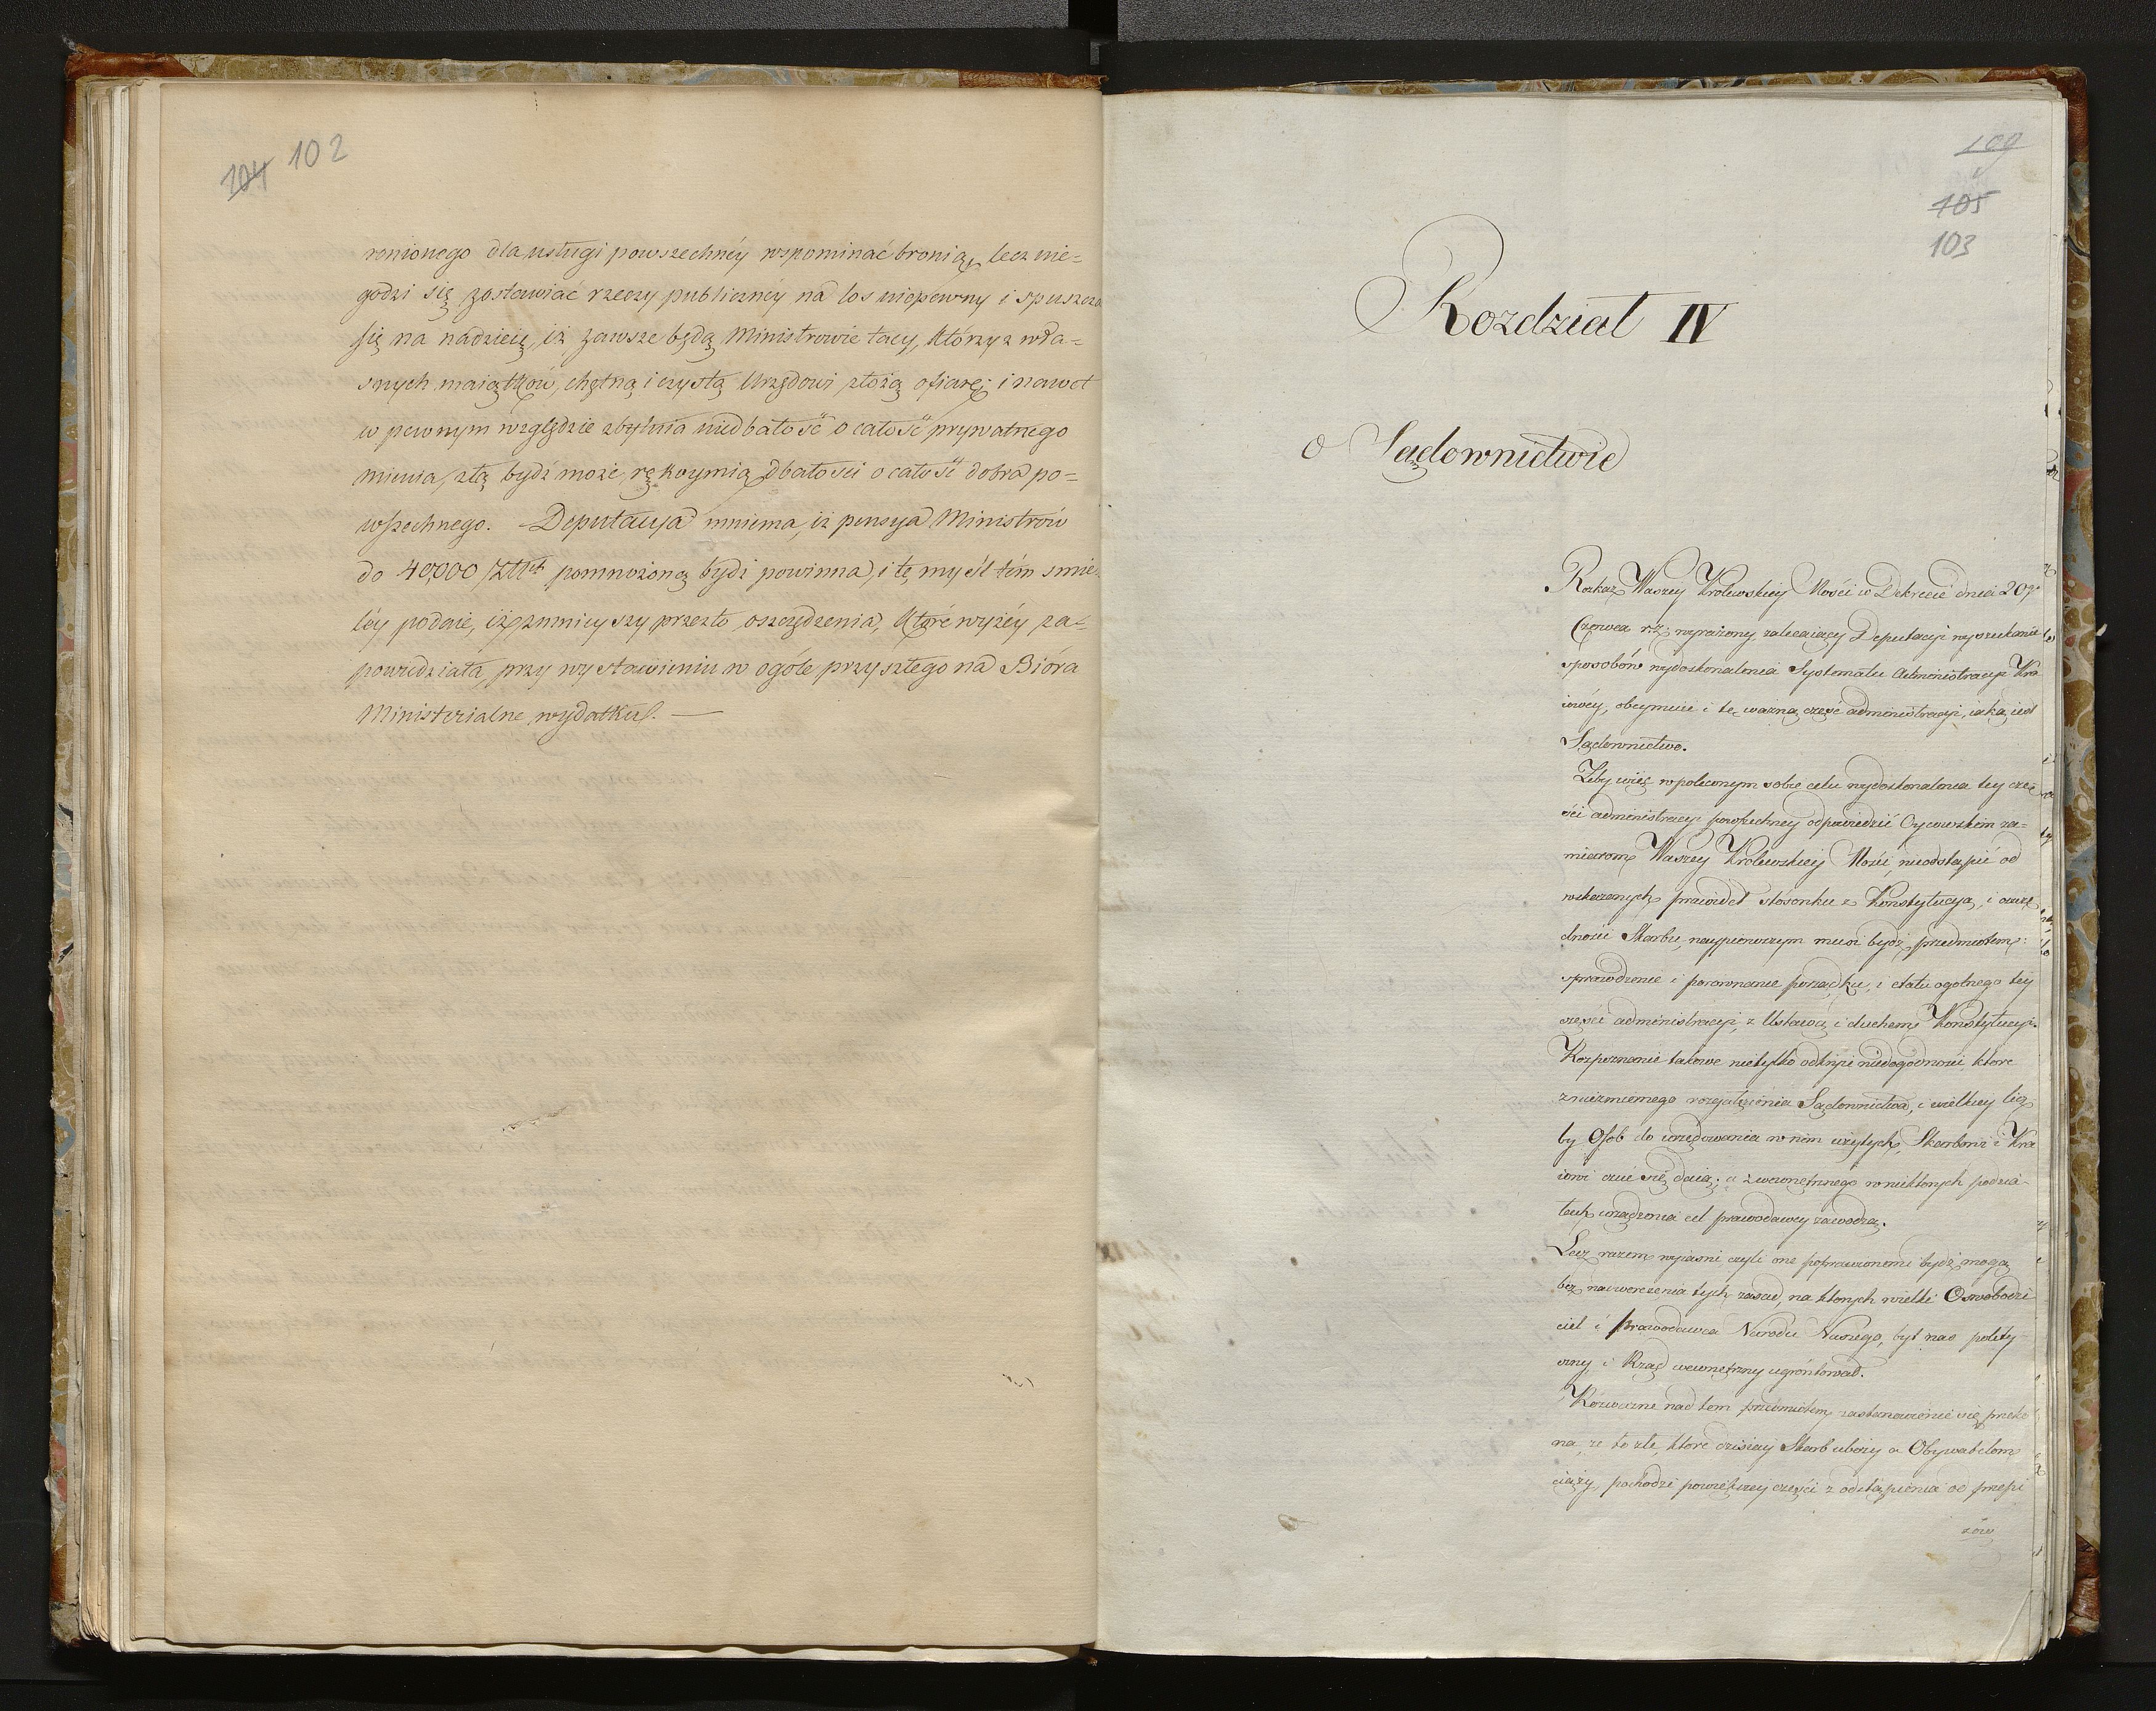 104 102
ronionego dla usługi powszechnéy wspominać bronią, lecz nie=
godzi się zostawiać rzeczy publicznéy na los niepewny i spuszcza
się na nadzieię, iż zawsze będą Ministrowie tacy, którzy z wła=
snych maiątków, chętną i czystą Urzędowi złożą ofiarę; i nawet
w pewnym względzie zbytnia niedbałość o całość prywatnego
mienia, złą bydź może rękoymią dbałości o całość dobra po=
wszechnego. Deputacya mniema, iż pensya Ministrów
do 40,000 Złt pomnożoną bydź powinna, i tę myśl tém smie=
léy podaie, iż zmnieyszy przezto oszczędzenia, które wyżéy za=
powiedziała, przy wystawieniu w ogóle przyszłego na Bióra
Ministerialne wydatku. —
109
105
103
Rozdział IV
o Sądownictwie
Rozkaz Waszey Królewskiey Mości w Dekrecie dnia 20go
Czerwca r.z. wyrażony, zalecaiący Deputacyi wyszukanie
sposobów wydoskonalenia Systematu Administracyi Kra
iowéy, obeymuie i tę ważną część administracyi, iaką iest
Sądownictwo.
Żeby więc w poleconym sobie celu wydoskonalenia tey czę
ści administracyi powszechney odpowiedzieć Oycowskim za=
miarom Waszey Królewskiey Mości, nieodstąpić od
wskazanych prawideł stósunku z Konstytucyą, i oszczę
dności Skarbu, naypierwszym musi bydź przedmiotem:
sprawdzenie i porównanie porządku, i etatu ogolnego tey
części administracyi, z Ustawą i duchem Konstytucyi.
Rozpoznanie takowe nietylko odkryie niedogodności, ktore
z niezmiernego rozgałęzienia Sądownictwa, i wielkiey licz
by Osob do urzędowania w nim użytych, Skarbowi i Kra
iowi czuć się daią; a z wewnętrznego w niektorych podzia-
łach urządzenia cel prawodawcy zawodzą.
Lecz razem wyiaśni czyli one poprawionemi bydź mogą
bez nadwerężenia tych zasad, na ktorych wielki Oswobodzi
ciel i Prawodawca Narodu Naszego, byt nasz polity
czny i Rząd wewnętrzny ugróntował.
Rozważne nad tem przedmiotem zastanowienie się przeko
na, że to złe, ktore dzisiay Skarb uboży a Obywatelom
cięży, pochodzi powiększey części z odstąpienia od przepi
sow